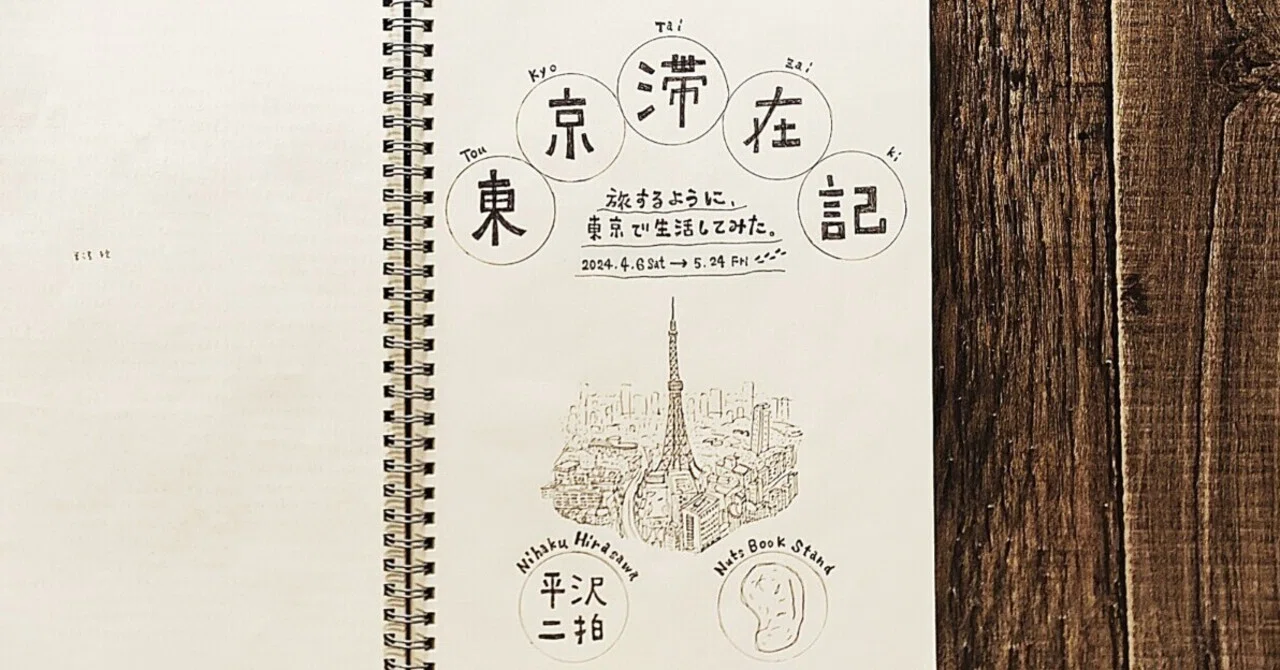 Tou Kyo Tai Zai Ki
東京滞在記
旅するように、
東京で生活してみた。
2024.4.6 Sat → 5.24 Fri
Nihaku Hirasawa
平沢
二拍
Nuts Book Stand